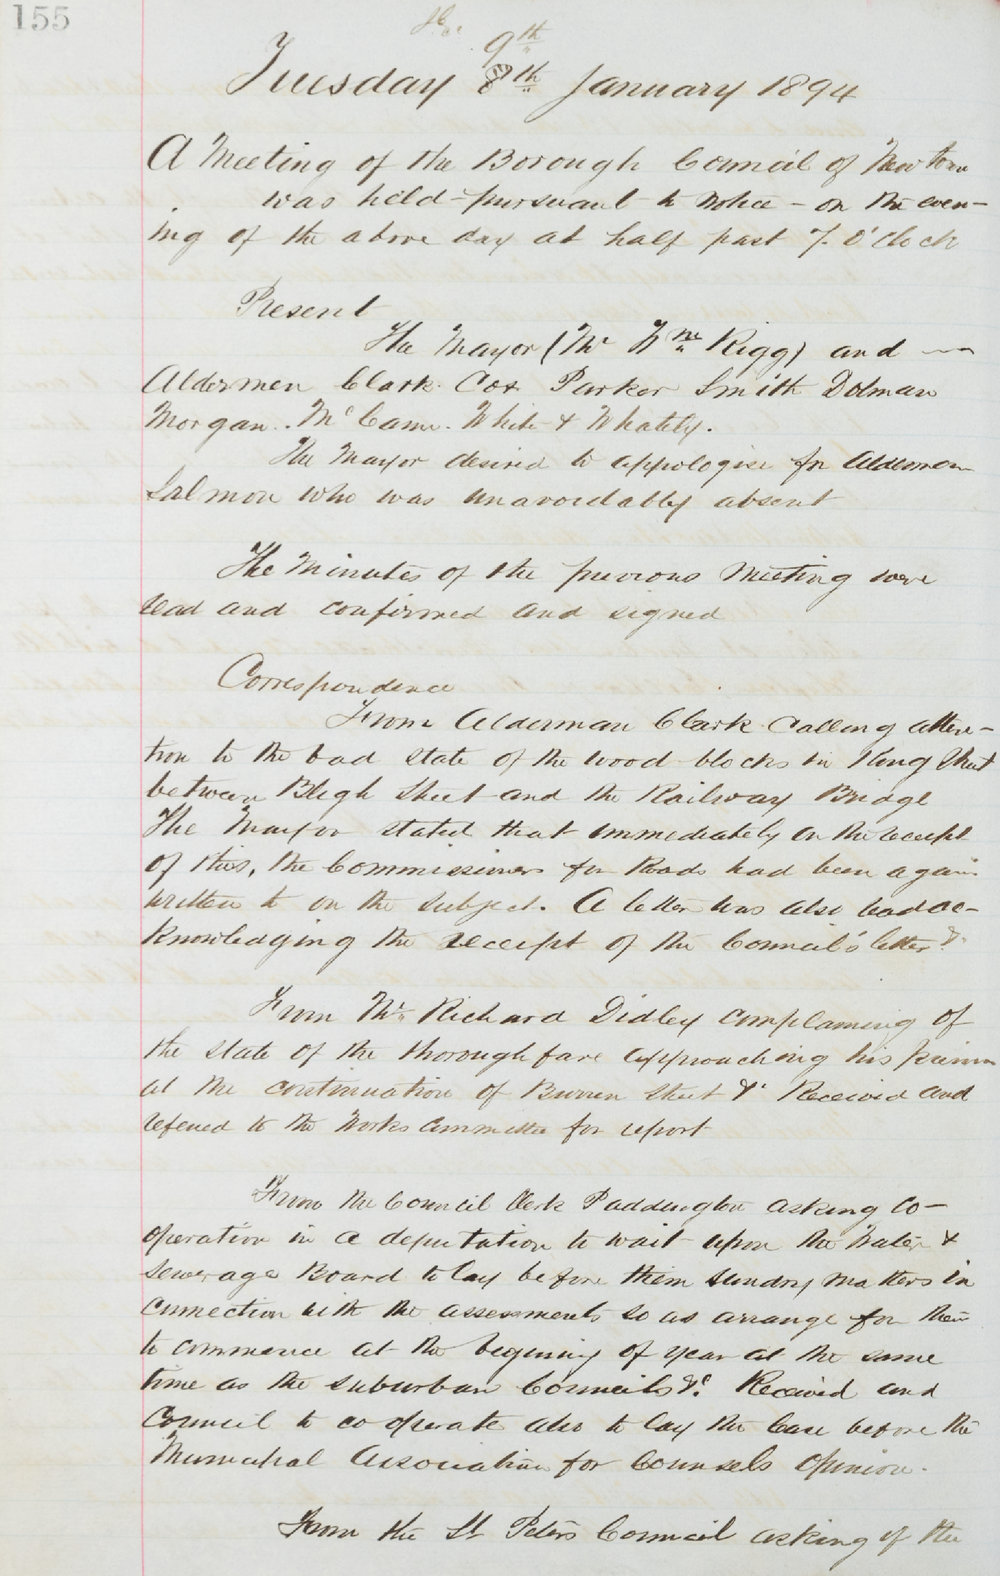 155
9th
Tuesday 8th January 1894
A Meeting of the Borough Council of Newtown
was held - pursuant to Notice - on the even-
ing of the above day at half past 7. O'Clock
Present
The Mayor (Mr Wm Rigg) and
Aldermen Clark. Cox Parker Smith Dolman
Morgan. McCann. White & Whately.
The Mayor desired to appologise for Alderman
Salmon who was unavoidably absent
The Minutes of the previous Meeting were
read and confirmed and signed
Correspondence
From Alderman Clark calling atten-
tion to the bad state of the wood blocks in King Street
between Bligh Street and the Railway Bridge
The Mayor stated that immediately on the receipt
of this, the Commissioners for Roads had been again
written to on the subject. A letter was also read ac-
knowledging the receipt of the Council's letter &c
From Mr. Richard Didley complaining of
the state of the thoroughfare approaching his
at the continuation of Burren Street &c Received and
refered to the Works Committee for report
From the Council Clerk Paddington asking Co-
operation in a deputation to wait upon the Water &
Sewerage Board to lay before them sundry matters in
connection with the assessments so as arrange for them
to commence at the begining of year at the same
time as the suburban Councils &c. Received and
Council to co operate also to lay the Case before the
Municipal Association for Counsels Opinion.
From the St Peters Council asking if the